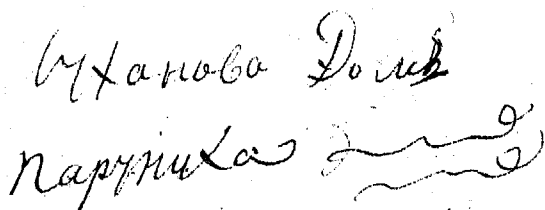 Суханова Доли
Паруниха